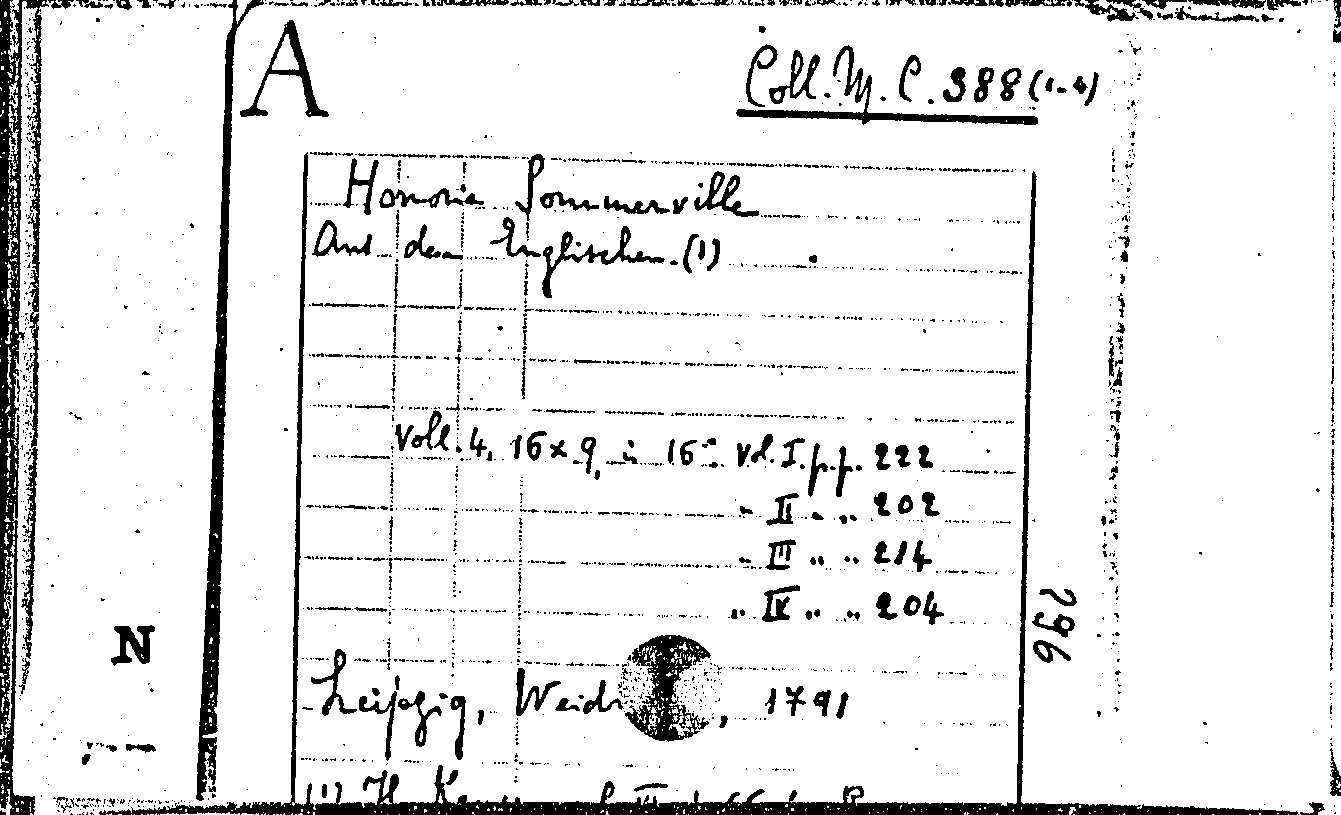 A
Coll. M. C. 388 (1-4)
Honoria Sommerville
Aus dem Englischen. (1)
Voll. 4, 16 x 9, in 16º. Vol. I. p.p. 222
" II " " 202
" III " " 214
" IV " " 204
296
N
Leipzig, Weid , 1791
(1) H.